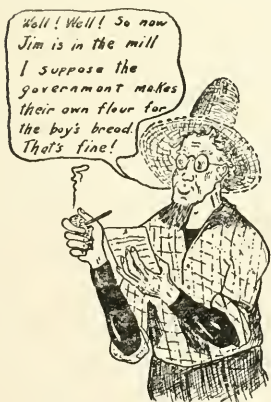 Well! Well! So now
Jim is in the mill
I suppose the
government makes
their own flour for
the boy's bread.
That's fine!